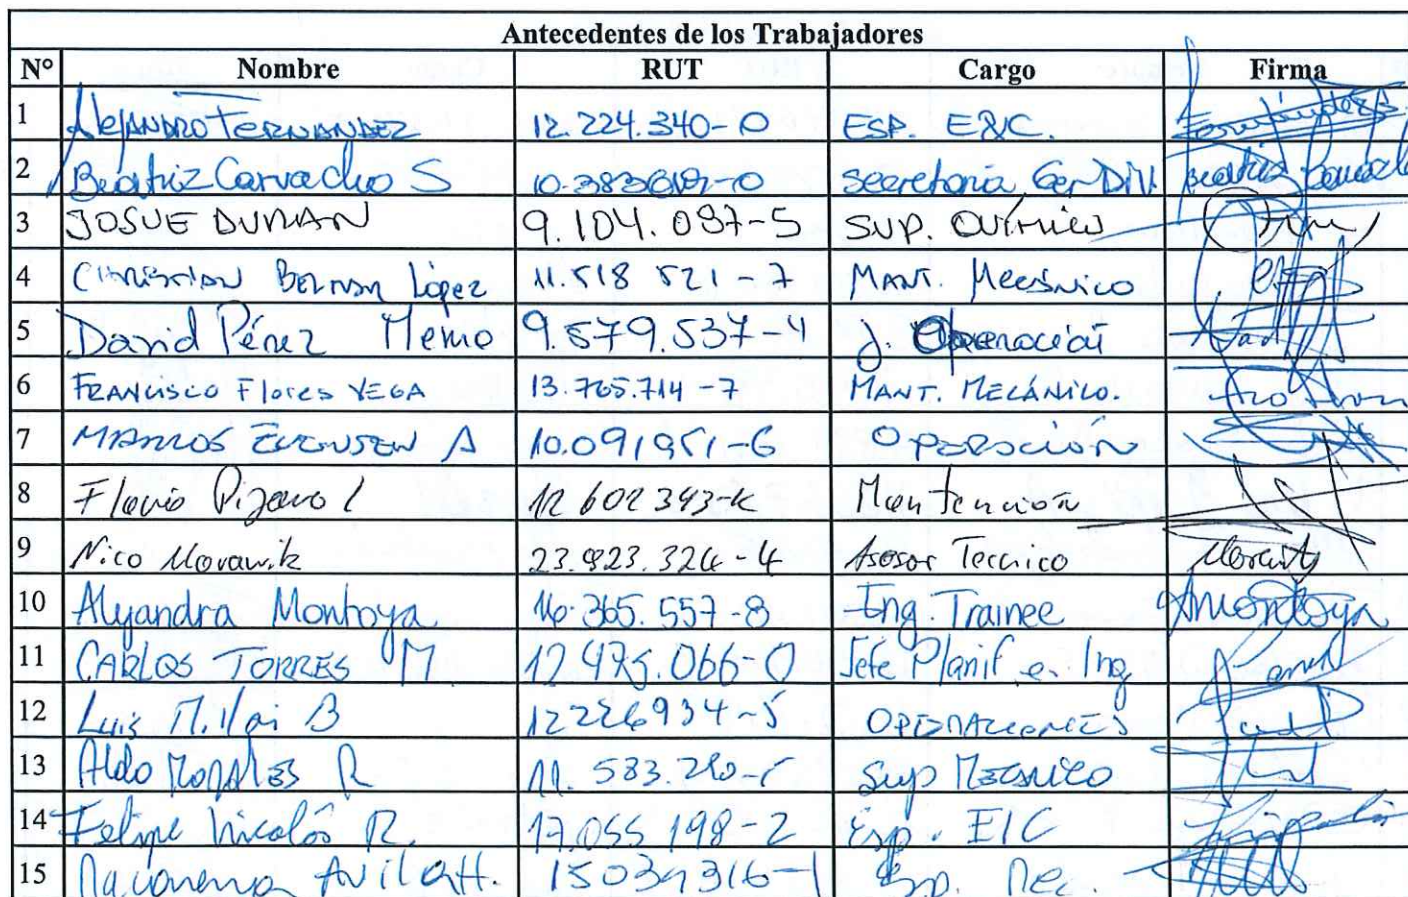 Antecedentes de los Trabajadores
N° Nombre RUT Cargo Firma
1 Alejandro Fernandez 12.224.340-0 ESP. E&IC.
2 Beatriz Carvacho S secretaria Ger Div
3 JOSUE DURAN 9.104.087-5 SUP. Químico
4 Christian Bernan López 11.518 521-7 MANT. Mecánico
5 David Pérez Merino 9.579.537-4 J. Operación
6 FRANCISCO Flores VEGA 13.765.714-7 MANT. MECÁNICO.
7 MARCOS A 10.091951-6 Operación
8 Flavio Pizarro L 12 602 343-K Mantención
9 Nico Morawik 23.823.324-4 Asesor Tecnico
10 Alejandra Montoya 16.365.557-8 Ing. Trainee AMontoya
11 CARLOS TORRES M 12.475.066-0 Jefe Planif e. Ing
12 Luis B 12226934-5 OPERACIONES
13 Aldo MORALES R 11. 583. Sup Mecánico
14 Felipe Nicolás R. 17.055 198-2 Esp. EIC
15 Macarena Avila H. 15034316-1 Esp. Mec.